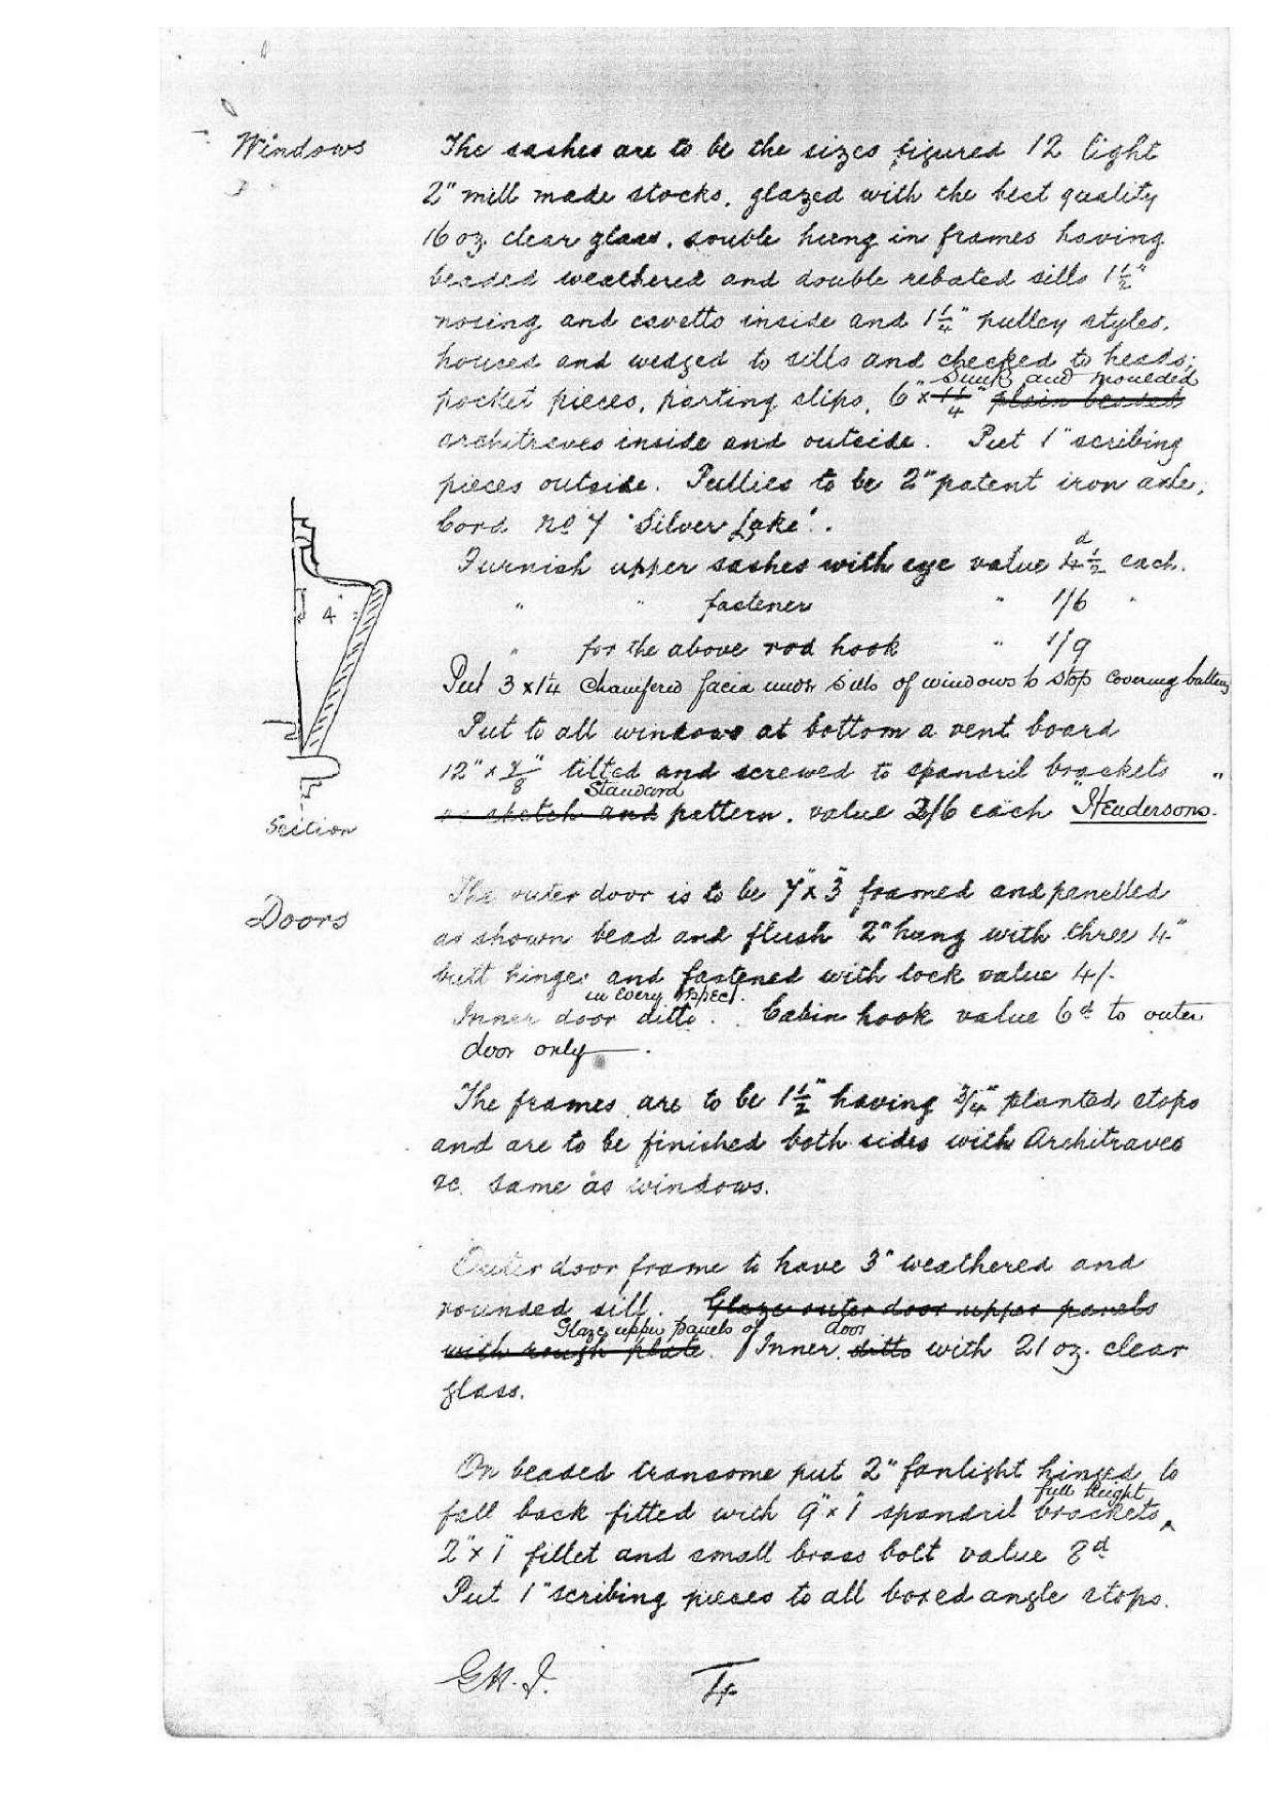 Windows
The sashes are to be the sizes figured 12 light
2" mill made stocks, glazed with the best quality
16 oz. clear glass, double hung in frames having
beaded weathered and double rebated sills 1½"
nosing and cavetto inside and 1¼" pulley styles,
housed and wedged to sills and checked to heads;
sunk and moulded
pocket pieces, parting slips, 6" x 1¼" plain beaded
architraves inside and outside. Put 1" scribing
pieces outside. Pullies to be 2" patent iron axle,
Cord No 7 'Silver Lake'.
Furnish upper sashes with eye value 4½d each.
" " fastener " 1/6 "
" for the above rod hook " 1/9
4"
Put 3 x 1¼ chamfered facia under sills of windows to stop covering battens
Put to all windows at bottom a vent board
12" x 7/8" tilted and screwed to spandril brackets
Standard
as sketch and pattern. value 2/6 each "Hendersons".
Section
Doors
The outer door is to be 7" x 3" framed and panelled
as shown bead and flush 2" hung with three 4"
butt hinges and fastened with lock value 4/-
in every respect.
Inner door ditto. Cabin hook value 6d to outer
door only.
The frames are to be 1½" having 3/4" planted stops
and are to be finished both sides with Architraves
&c. same as windows.
Outer door frame to have 3" weathered and
rounded sill. Glaze outer door upper panels
Glaze upper panels of door
with rough plate. Inner ditto with 21 oz. clear
glass.
On beaded transome put 2" fanlight hinged to
full height
fall back fitted with 9" x 1" spandril brackets,
2" x 1" fillet and small brass bolt value 8d
Put 1" scribing pieces to all boxed angle stops.
4